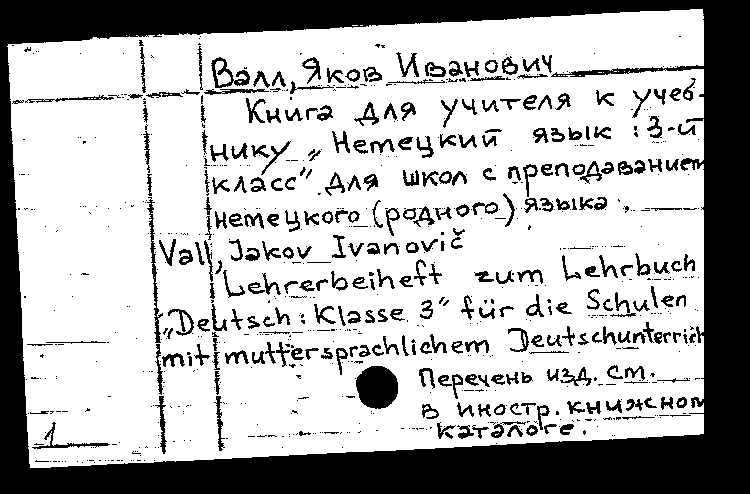 Валл, Яков Иванович
Книга для учителя к учеб-
нику „Немецкий язык : 3-й
класс" для школ с преподаванием
немецкого (родного) языка.
Vall, Jakov Ivanovič
Lehrerbeiheft zum Lehrbuch
„Deutsch : Klasse 3" für die Schulen
mit muttersprachlichem Deutschunterrich
Перечень изд. см.
в иностр. книжном
каталоге.
1